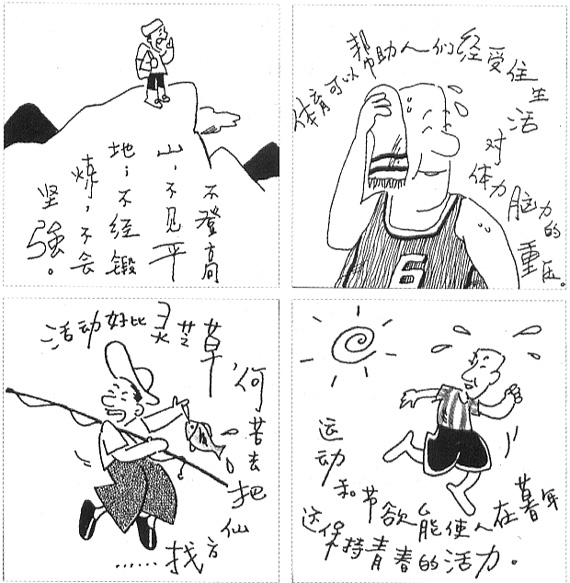 不登高
山，不见平
地；不经锻
炼，不会
坚强。
体育可以帮助人们经受住生活对体力脑力的重压。
6
活动好比灵芝草，何苦去把仙方找……
运动和节欲能使人在暮年
还保持青春的活力。